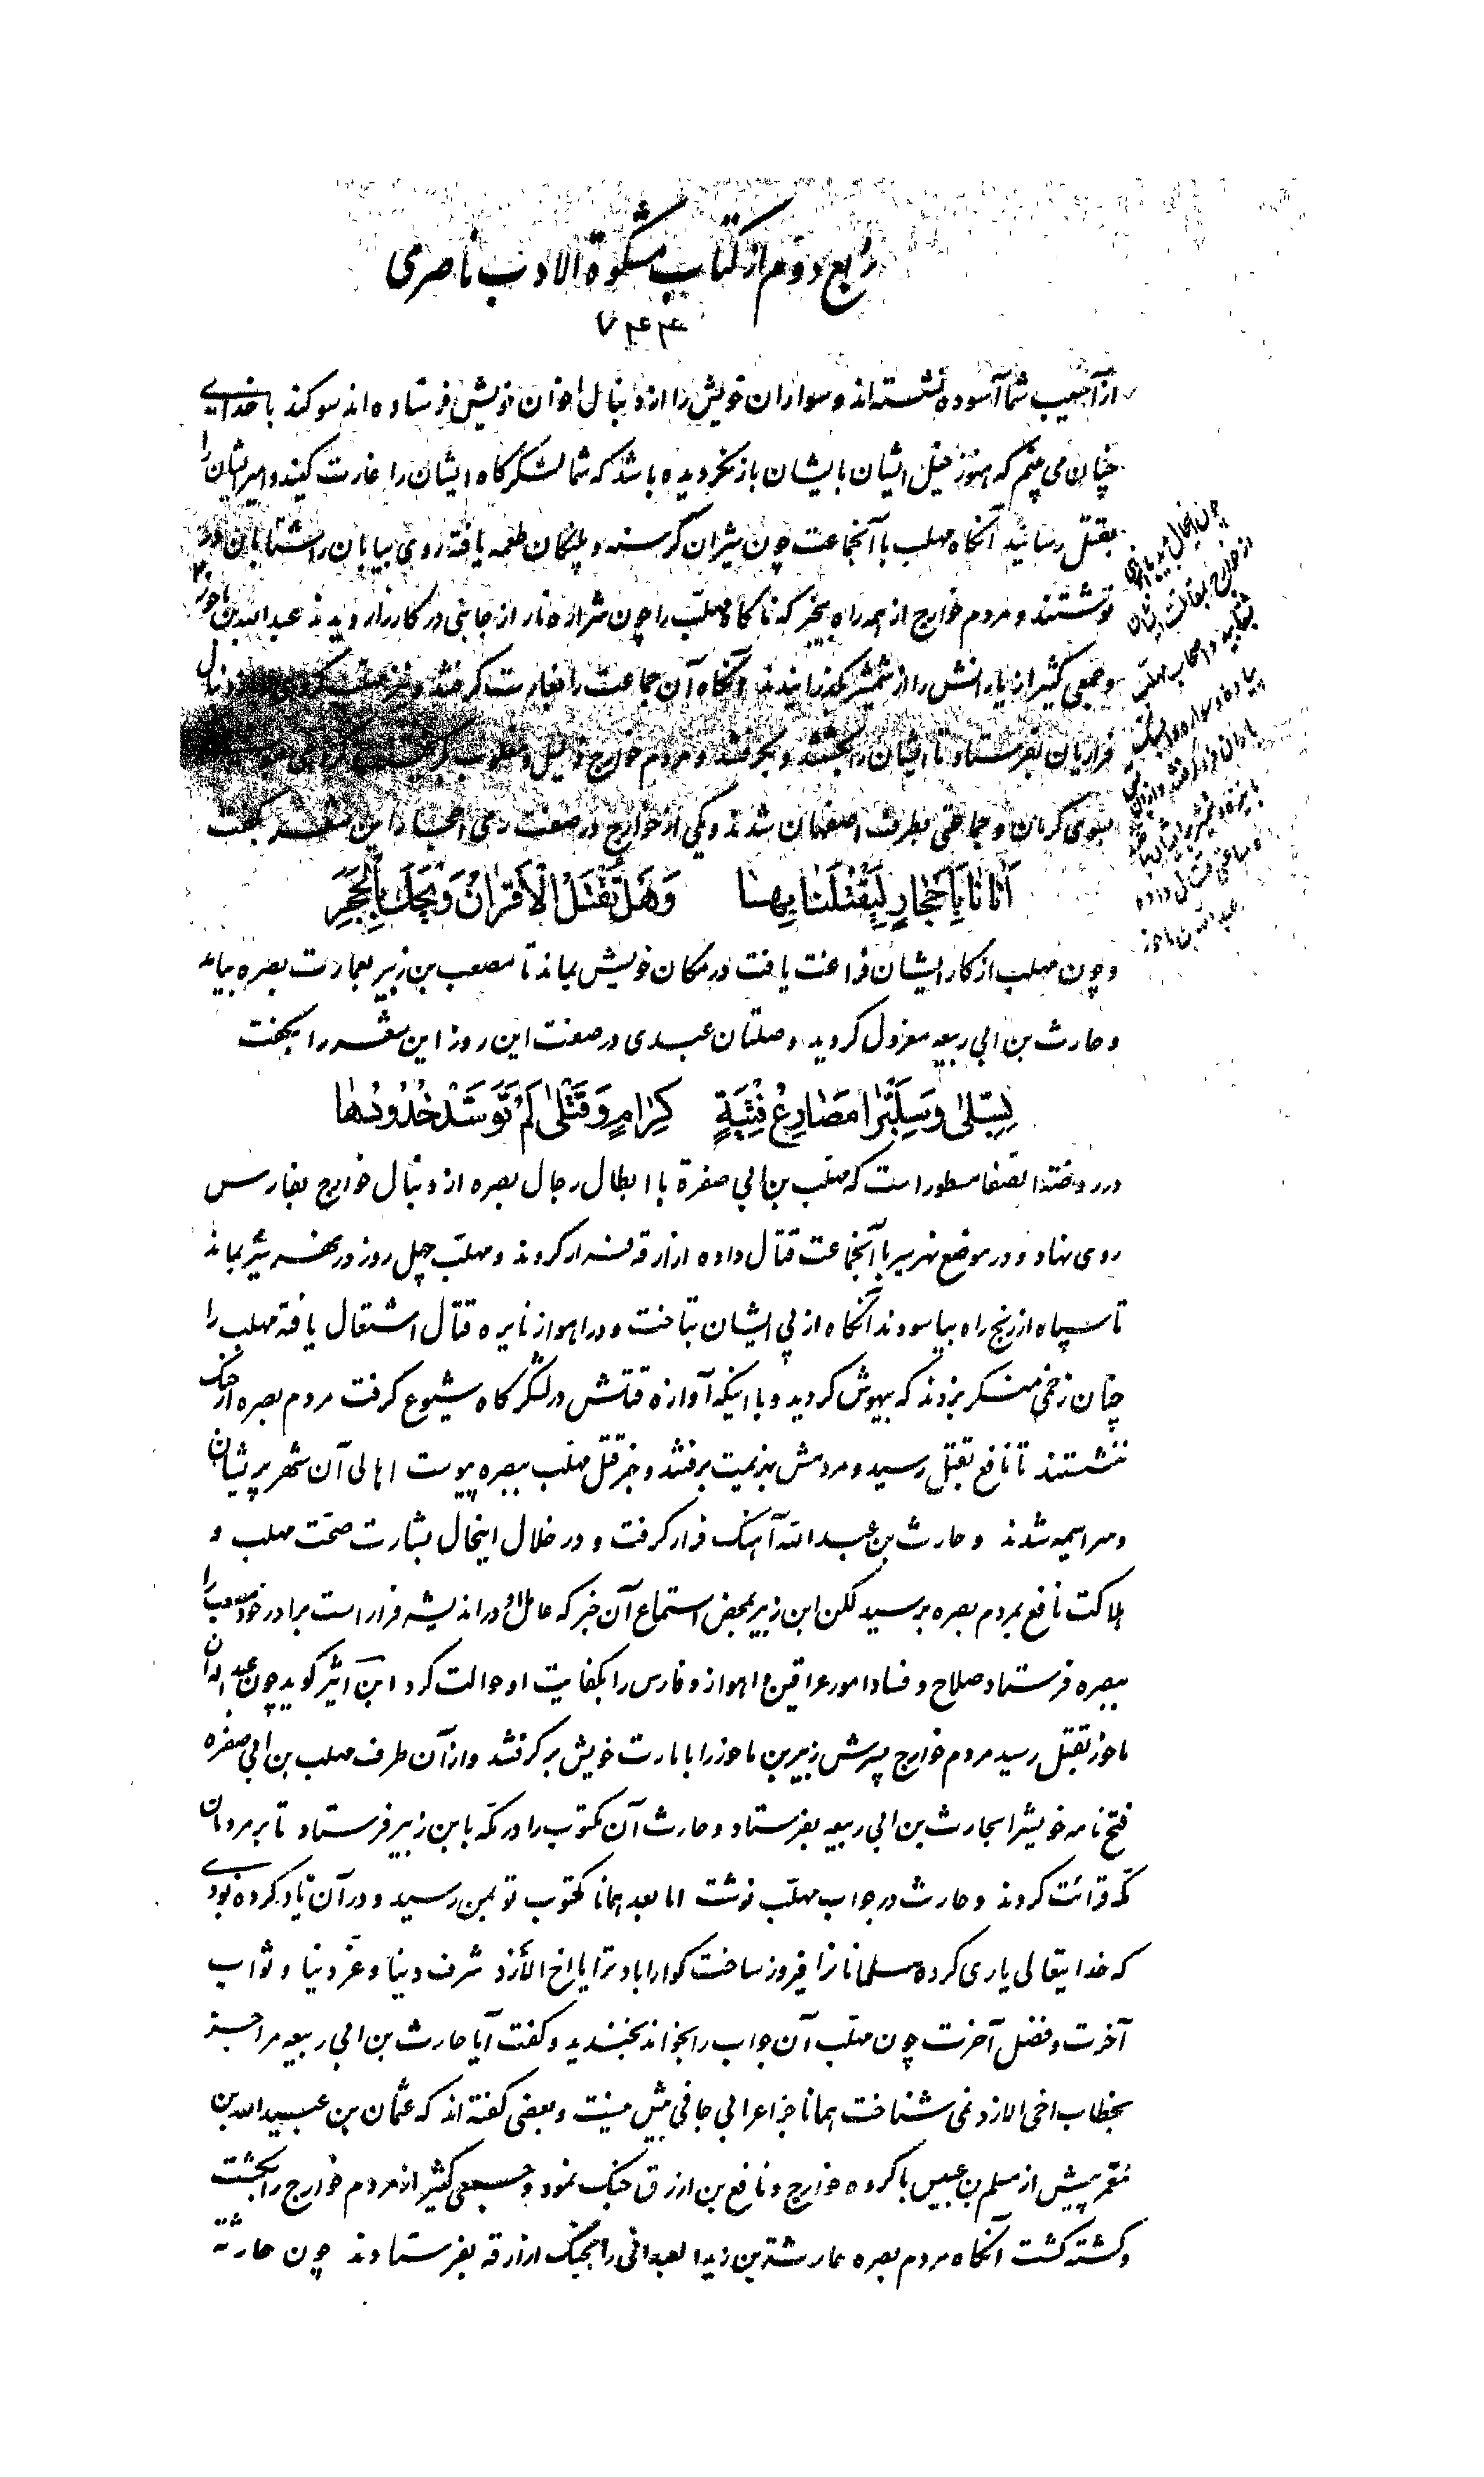 رابع دوم از کتاب مشکوة الادب ناصری
۷۴۴
از آسیب شما آسوده نشسته‌اند و سواران خویش را از دنبال اخوان خویش فرستاده‌اند سوکند با خدای
چنان می بینم که هنوز خیل ایشان بایشان باز نکردیده باشد که شما لشکرکاه ایشان را غارت کنید و امیر ایشان را
بقتل رسانید آنکاه مهلب با آنجماعت چون شیران کرسنه و پلنکان طعمه یافته روی بیابان را شتابان در
نوشتند و مردم خوارج از همه راه بیخبر که ناکاه مهلب را چون شراره نار از جانبی در کارزار دیدند عبدالله بن ماحوز
و جمعی کثیر از یارانش را از شمشیر بکذرانیدند و آنکاه آن جماعت را بغارت کرفتند و دنبال
فراریان بفرستاد تا ایشان را بکشتند و بکرفتند و مردم خوارج ذلیل و مغلوب
بسوی کرمان و جماعتی بطرف اصفهان شدند و یکی از خوارج در صفت رمی احجار این شعر بکفت
اَتانا بِاَحْجارٍ لِیَقْتُلَنا بِها وَهَلْ تُقْتَلُ الْاَقْرانُ وَیْحَكَ بِالْحَجَرِ
و چون مهلب از کار ایشان فراغت یافت در مکان خویش بماند تا مصعب بن زبیر بعمارت بصره بیامد
و حارث بن ابی ربیعه معزول کردید و صلتان عبدی در صفت این روز این شعر را بکفت
بِسِلّی وَسِلَّبْری مَصارِعُ فِتْیَةٍ کِرامٍ وَقَتْلی لَمْ تُوَسَّدْ خُدُودُها
در روضة الصفا مسطور است که مهلب بن ابی صفرة با ابطال رجال بصره از دنبال خوارج بفارس
روی نهاد و در موضع نهر تیر با آنجماعت قتال داده ازارقه فرار کردند و مهلب چهل روز در نهر تیر بماند
تا سپاه از رنج راه بیاسودند آنکاه از پی ایشان بتاخت و در اهواز نایره قتال اشتعال یافته مهلب را
چنان زخمی منکر بزدند که بیهوش کردید و با اینکه آوازه قتلش در لشکرکاه شیوع کرفت مردم بصره از جنک
ننشستند تا نافع بقتل رسید و مردمش بهزیمت برفتند و خبر قتل مهلب ببصره پیوست اهالی آن شهر پریشان
و سراسیمه شدند و حارث بن عبدالله آهنک فرار کرفت و در خلال اینحال بشارت صحت مهلب و
هلاکت نافع بمردم بصره برسید لکن ابن زبیر بمحض استماع آن خبر که عامل او در اندیشه فرار است برادر خود مصعب را
ببصره فرستاد صلاح و فساد امور عراقین و اهواز و فارس را بکفایت او حوالت کرد ابن اثیر کوید چون عبدالله بن
ماحوز بقتل رسید مردم خوارج پسرش زبیر بن ماحوز را بامارت خویش برکرفتند و از آن طرف مهلب بن ابی صفره
فتح نامه خویش را بحارث بن ابی ربیعه بفرستاد و حارث آن مکتوب را در مکه بابن زبیر فرستاد تا بر مردمان
مکه قرائت کردند و حارث در جواب مهلب نوشت اما بعد همانا مکتوب تو بمن رسید و در آن یاد کرده بودی
که خدایتعالی یاری کرده مسلمانان را فیروز ساخت کوارا باد ترا یا اخ الأزد شرف دنیا و عز دنیا و ثواب
آخرت و فضل آخرت چون مهلب آن جواب را بخواند بخندید و کفت آیا حارث بن ابی ربیعه مرا جز
بخطاب اخی الازد نمی شناخت همانا جز اعرابی جافی بیش نیست و بعضی کفته‌اند که عثمان بن عبیدالله بن
معمر پیش از مسلم بن عبیس با کروه خوارج و نافع بن ازرق جنک نمود و جمعی کثیر از مردم خوارج را بکشت
و کشته کشت آنکاه مردم بصره حارثة بن زید العدانی را بجنک ازارقه بفرستادند چون حارثة
چون اینحال بدیدند
از خوارج بقتال ایشان
بشتابید و اصحاب مهلب
پیاده و سواره
و ساعتی قتال داده
عبدالله بن ماحوز